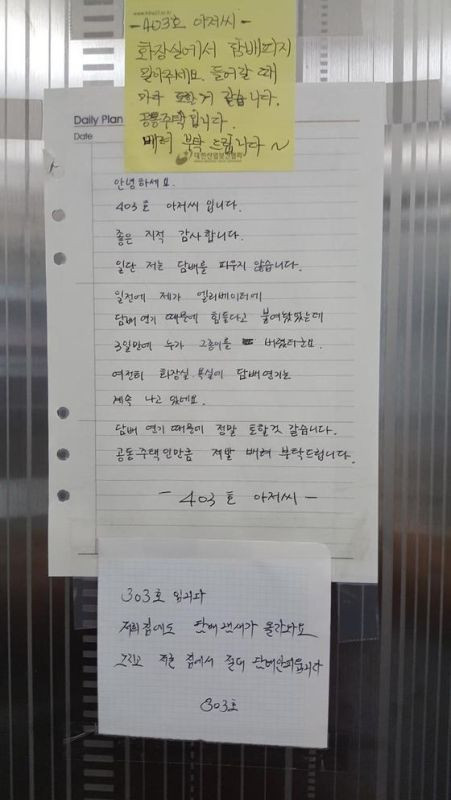 -403호 아저씨-
화장실에서 담배피지
말아주세요. 들어갈 때
마다 토할거 같습니다.
공동주택입니다.
배려 부탁드립니다~
대한산업보건협회
Daily Plan
Date
안녕하세요.
403호 아저씨 입니다.
좋은 지적 감사합니다.
일단 저는 담배를 피우지 않습니다.
일전에 제가 엘리베이터에
담배 연기 때문에 힘들다고 붙여놨었는데
3일만에 누가 그종이를 버렸더군요.
여전히 화장실·욕실이 담배연기는
계속 나고 있네요.
담배 연기 때문에 정말 토할것 같습니다.
공동주택인만큼 제발 배려 부탁드립니다.
- 403호 아저씨 -
303호 입니다
저희집에도 담배냄새가 올라와요
그리고 저흰 집에서 절대 담배안피웁니다
303호